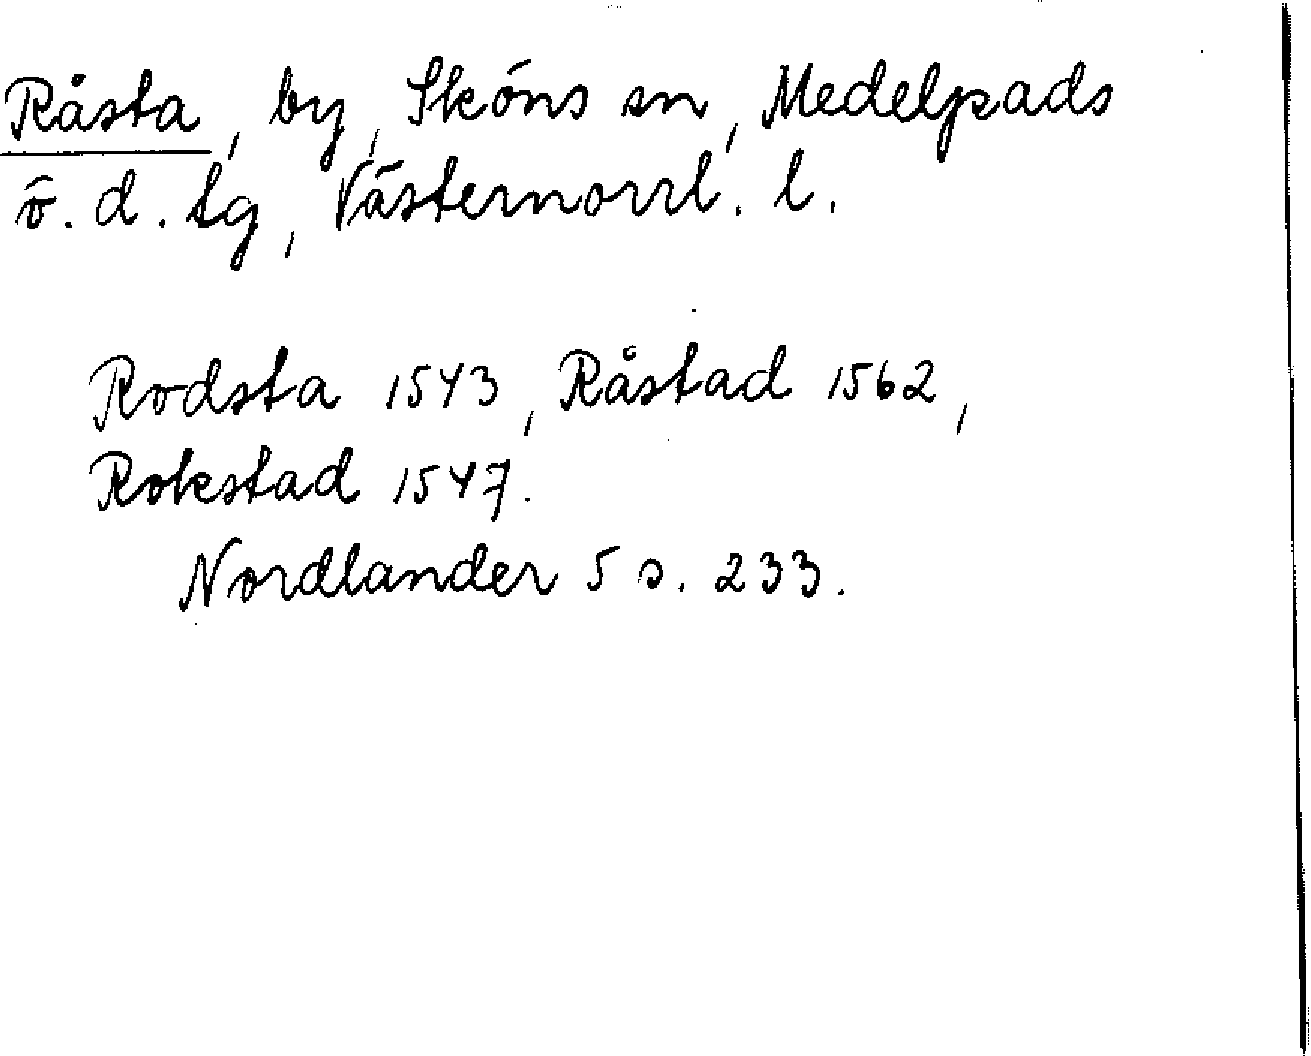 Råsta, by, Sköns sn, Medelpads
ö. d. tg, Västernorrl. l.
Rodsta 1543, Råstad 1562,
Rokstad 1547.
Nordlander 5 s. 233.